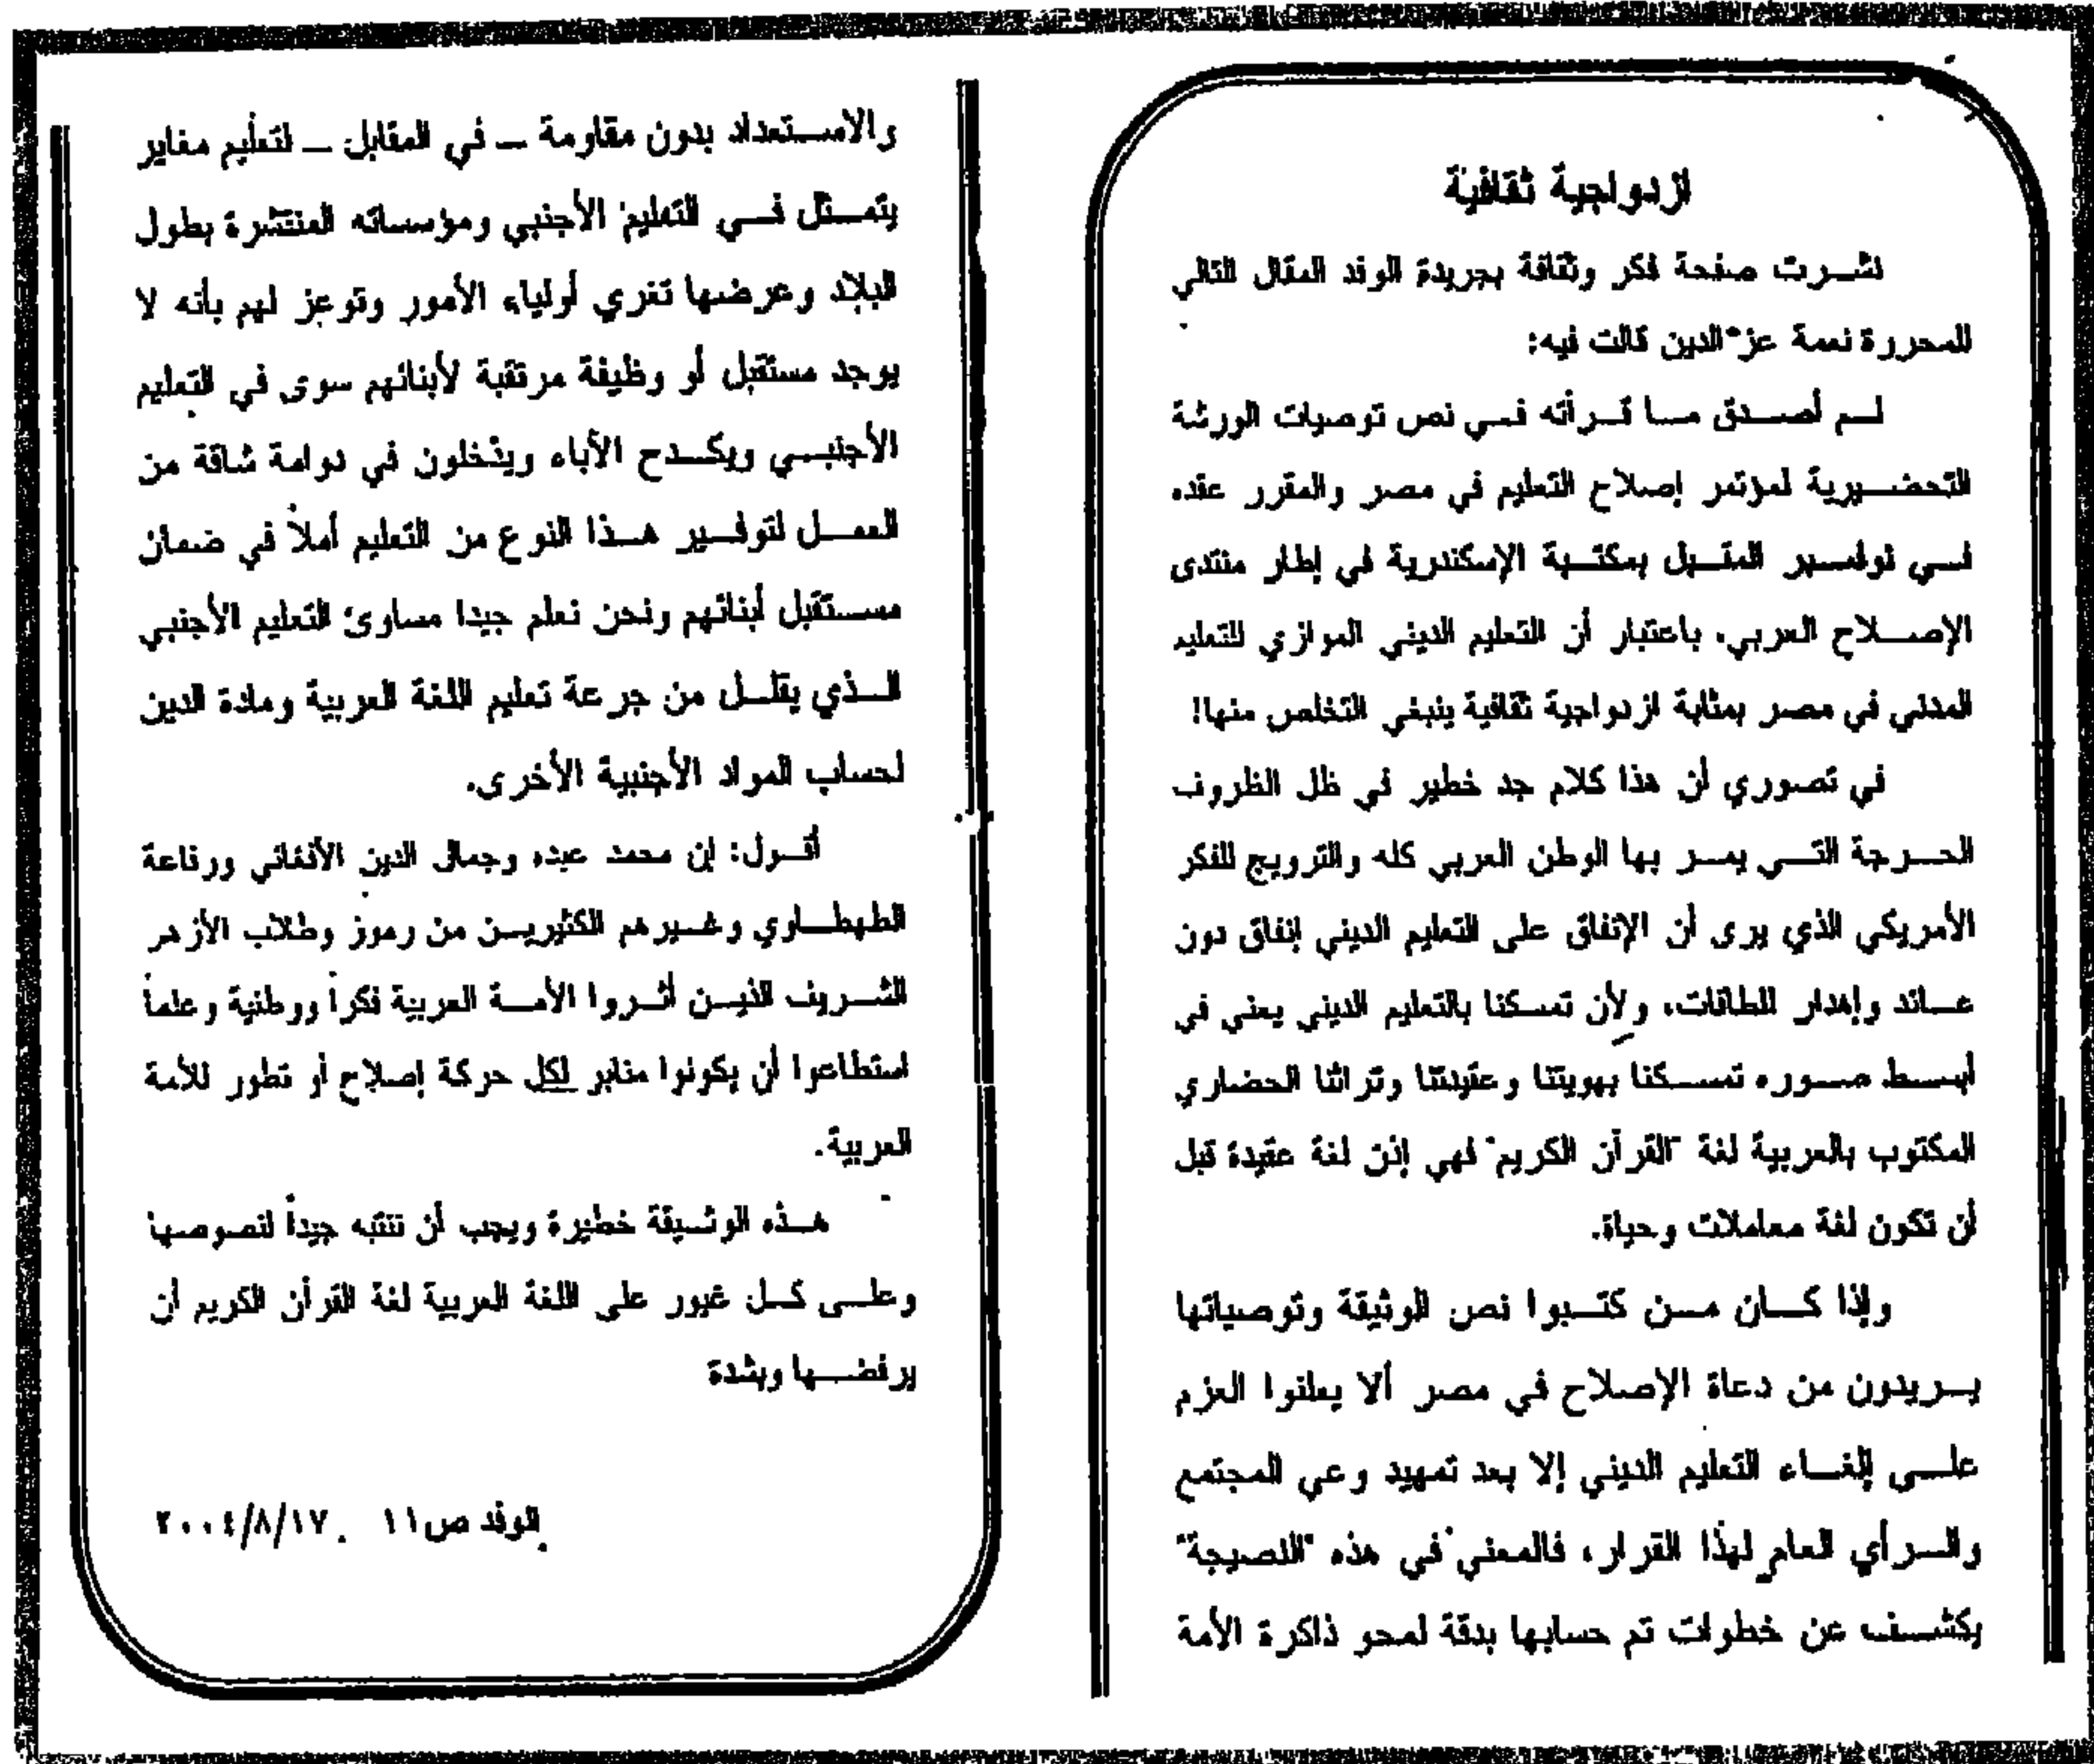 ازدواجية ثقافية
نشرت صفحة فكر وثقافة بجريدة الوفد المقال التالي
للمحررة نعمة عز الدين قالت فيه:
لم أصدق ما قرأته في نص توصيات الورشة
التحضيرية لمؤتمر إصلاح التعليم في مصر والمقرر عقده
في نوفمبر المقبل بمكتبة الإسكندرية في إطار منتدى
الإصلاح العربي، باعتبار أن التعليم الديني الموازي للتعليم
المدني في مصر بمثابة ازدواجية ثقافية ينبغي التخلص منها!
في تصوري أن هذا كلام جد خطير في ظل الظروف
الحرجة التي يمر بها الوطن العربي كله والترويج للفكر
الأمريكي الذي يرى أن الإنفاق على التعليم الديني إنفاق دون
عائد وإهدار للطاقات، ولأن تمسكنا بالتعليم الديني يعني في
أبسط صوره تمسكنا بهويتنا وعقيدتنا وتراثنا الحضاري
المكتوب بالعربية لغة "القرآن الكريم" فهي إذن لغة عقيدة قبل
أن تكون لغة معاملات وحياة.
وإذا كان من كتبوا نص الوثيقة وتوصياتها
يريدون من دعاة الإصلاح في مصر ألا يعلنوا العزم
على إلغاء التعليم الديني إلا بعد تمهيد وعي المجتمع
والرأي العام لهذا القرار، فالمعني في هذه "النصيحة"
يكشف عن خطوات تم حسابها بدقة لمحو ذاكرة الأمة
والاستعداد بدون مقاومة – في المقابل – لتعليم مغاير
يتمثل في التعليم الأجنبي ومؤسساته المنتشرة بطول
البلاد وعرضها تغري أولياء الأمور وتوعز لهم بأنه لا
يوجد مستقبل أو وظيفة مرتقبة لأبنائهم سوى في التعليم
الأجنبي ويكدح الأباء ويدخلون في دوامة شاقة من
العمل لتوفير هذا النوع من التعليم أملاً في ضمان
مستقبل أبنائهم ونحن نعلم جيدا مساوئ التعليم الأجنبي
الذي يقلل من جرعة تعليم اللغة العربية ومادة الدين
لحساب المواد الأجنبية الأخرى.
أقول: إن محمد عبده وجمال الدين الأفغاني ورفاعة
الطهطاوي وغيرهم الكثيرين من رموز وطلاب الأزهر
الشريف الذين أثروا الأمة العربية فكراً ووطنية وعلماً
استطاعوا أن يكونوا منابر لكل حركة إصلاح أو تطور للأمة
العربية.
هذه الوثيقة خطيرة ويجب أن ننتبه جيداً لنصوصها
وعلى كل غيور على اللغة العربية لغة القرآن الكريم أن
يرفضها وبشدة
الوفد ص١١ ٢٠٠٤/٨/١٧